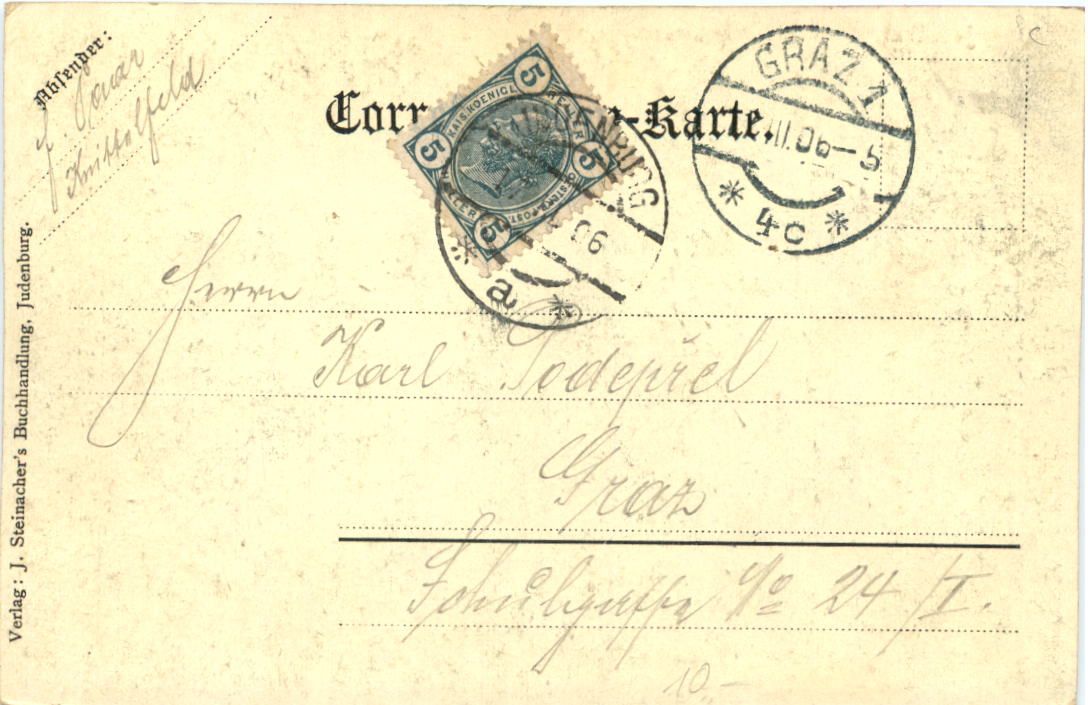 Absender:
Knittelfeld
Corr -Karte.
5 KAIS. KOENIGL. 5
HELLER
5 HELLER 5
OESTERR. POST.
JUDENBURG
06
a
GRAZ 1
III.06-5
1
* 4c *
Herrn
Karl
Graz
Schulgasse No 24/I.
10.-
Verlag: J. Steinacher's Buchhandlung, Judenburg.